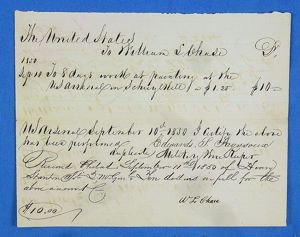 The United States
To William L Chase Dr
1850
Sep 10 To 8 days work at painting at the
US Arsenal on Schuy = $1.25 $10—
US Arsenal September 10th, 1850 I Certify the above
has been performed Edward S.
duplicate Military Store Keeper
Received Philad September 11th 1850 of Henry
Ten dollars in full for the
above amount
$10.00 W L Chase